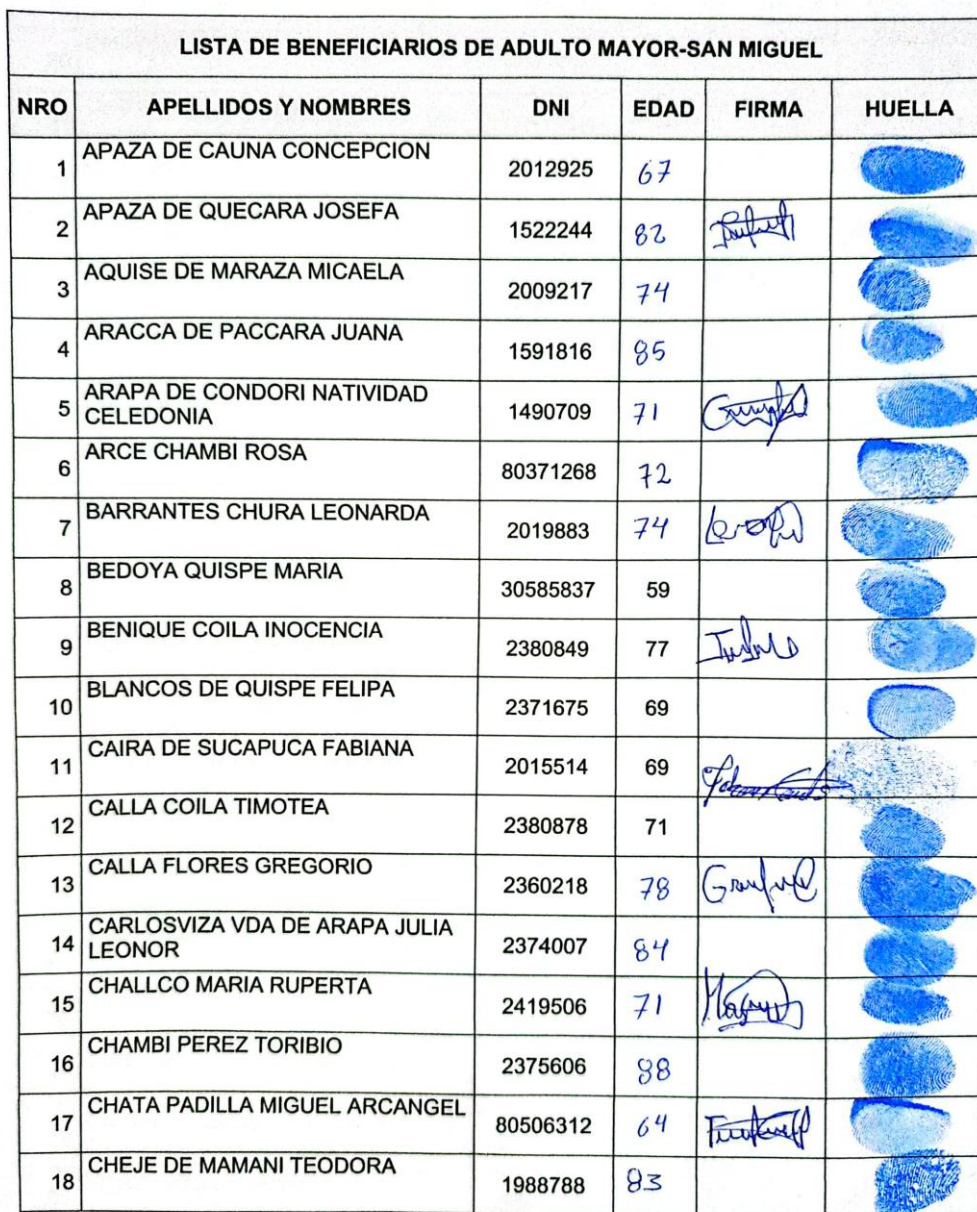 LISTA DE BENEFICIARIOS DE ADULTO MAYOR-SAN MIGUEL
NRO APELLIDOS Y NOMBRES DNI EDAD FIRMA HUELLA
1 APAZA DE CAUNA CONCEPCION 2012925 67
2 APAZA DE QUECARA JOSEFA 1522244 82
3 AQUISE DE MARAZA MICAELA 2009217 74
4 ARACCA DE PACCARA JUANA 1591816 85
5 ARAPA DE CONDORI NATIVIDAD
CELEDONIA 1490709 71
6 ARCE CHAMBI ROSA 80371268 72
7 BARRANTES CHURA LEONARDA 2019883 74
8 BEDOYA QUISPE MARIA 30585837 59
9 BENIQUE COILA INOCENCIA 2380849 77
10 BLANCOS DE QUISPE FELIPA 2371675 69
11 CAIRA DE SUCAPUCA FABIANA 2015514 69
12 CALLA COILA TIMOTEA 2380878 71
13 CALLA FLORES GREGORIO 2360218 78
14 CARLOSVIZA VDA DE ARAPA JULIA
LEONOR 2374007 84
15 CHALLCO MARIA RUPERTA 2419506 71
16 CHAMBI PEREZ TORIBIO 2375606 88
17 CHATA PADILLA MIGUEL ARCANGEL 80506312 64
18 CHEJE DE MAMANI TEODORA 1988788 83